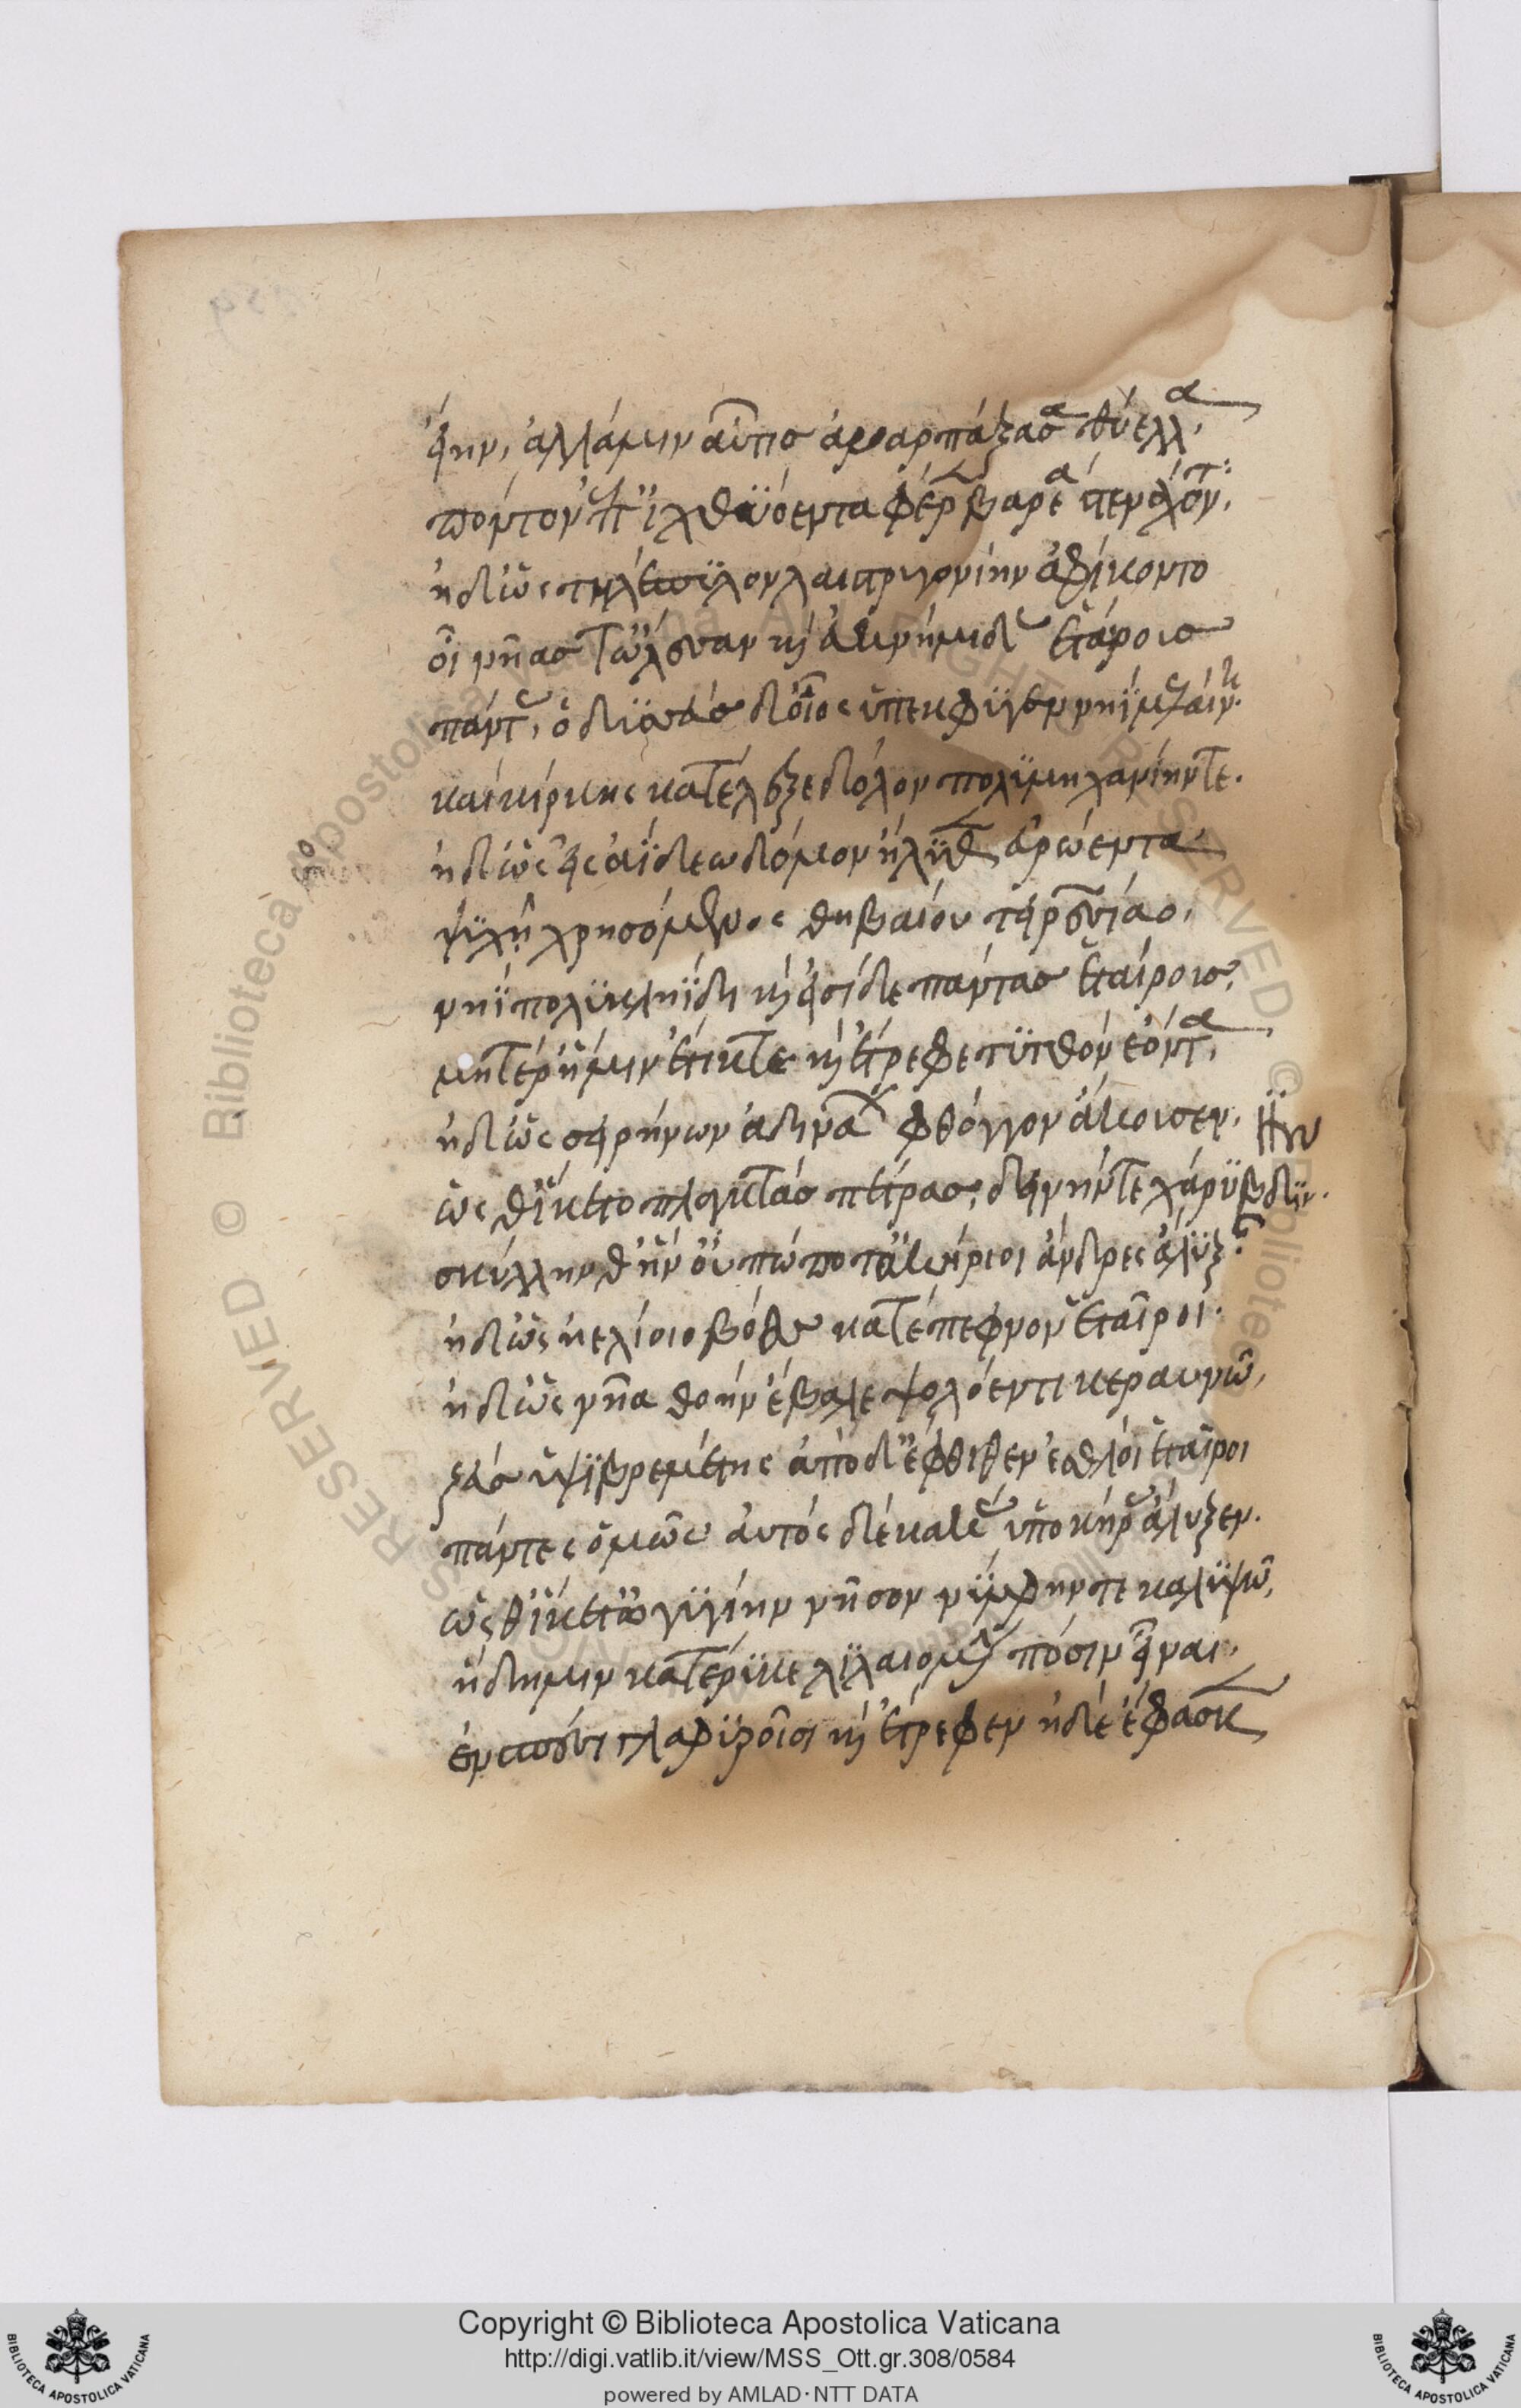 ἔην, ἀλλά μιν αὖτις ἀναρπάξασα θύελλα,
πόντον ἐπ' ἰχθυόεντα φέρεν βαρέα στενάχοντα.
ἠδ' ὡς τηλέπυλον λαιστρυγονίην ἀφίκοντο
οἳ νῆας τ' ὤλεσαν καὶ ἐϋκνήμιδας ἑταίρους
πάντας, ὀδυσσεὺς δ' οἶος ὑπέκφυγε νηῒ μελαίνῃ.
καὶ κίρκης κατέλεξε δόλον πολυμηχανίην τε.
ἠδ' ὡς εἰς ἀΐδεω δόμον ἤλυθεν εὐρώεντα
ψυχῇ χρησόμενος θηβαίου τειρεσίαο,
νηῒ πολυκληΐδι καὶ εἴσιδε πάντας ἑταίρους,
μητέρ' ἥ μιν ἔτικτε καὶ ἔτρεφε τυτθὸν ἐόντα,
ἠδ' ὡς σειρήνων ἀδινάων φθόγγον ἄκουσεν.
ὥς θ' ἵκετο πλαγκτὰς πέτρας, δεινήν τε χάρυβδιν.
σκύλλην θ' ἣν οὔ πώποτ' ἀκήριοι ἄνδρες ἄλυξαν.
ἠδ' ὡς ἠελίοιο βόας κατέπεφνον ἑταῖροι.
ἠδ' ὡς νῆα θοὴν ἔβαλε ψολόεντι κεραυνῶ,
ζεὺς ὑψιβρεμέτης ἀπὸ δ' ἔφθιθεν ἐσθλοὶ ἑταῖροι
πάντες ὁμῶς αὐτὸς δὲ κακὰς ὑπὸ κῆρας ἄλυξεν.
ὥς θ' ἵκετ' ὠγυγίην νῆσον νύμφην τε καλυψώ,
ἣ δή μιν κατέρυκε λιλαιομένη πόσιν εἶναι.
ἐν σπέσσι γλαφυροῖσι καὶ ἔτρεφεν ἠδὲ ἔφασκεν